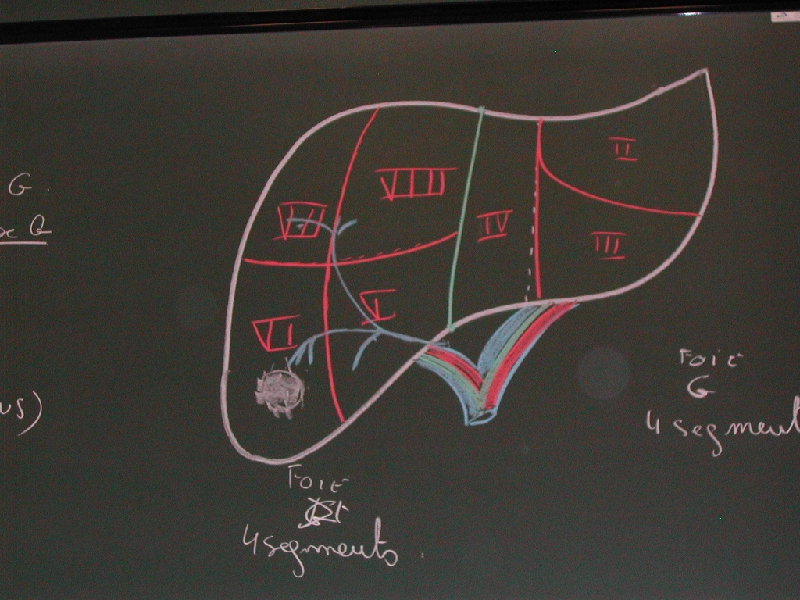 G.
G
us)
II
VIII
VII
IV
III
V
VI
Foie
G
4 segment
Foie
4 segments.